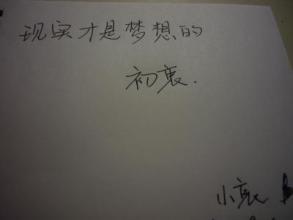 现实才是梦想的
初衷.